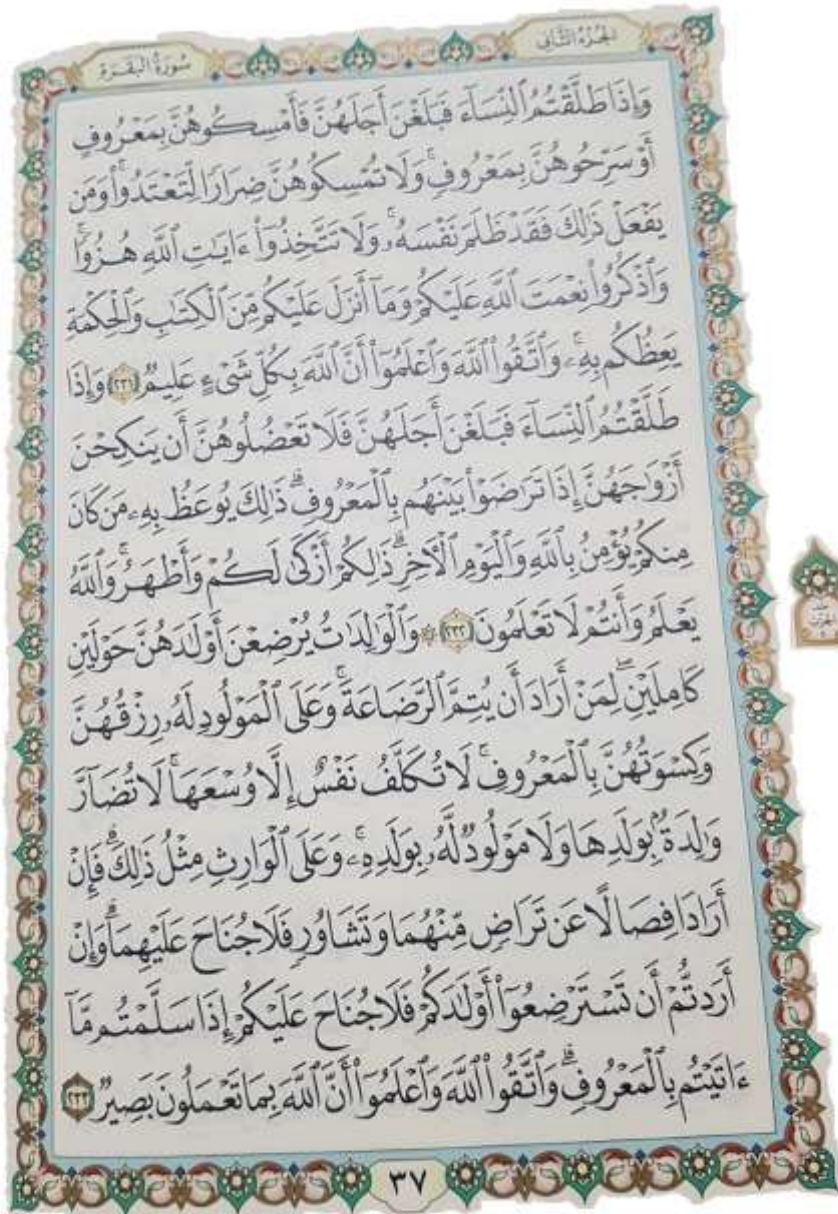 الجزء الثاني
سورة البقرة
وَإِذَا طَلَّقْتُمُ ٱلنِّسَآءَ فَبَلَغْنَ أَجَلَهُنَّ فَأَمْسِكُوهُنَّ بِمَعْرُوفٍ
أَوْ سَرِّحُوهُنَّ بِمَعْرُوفٍۚ وَلَا تُمْسِكُوهُنَّ ضِرَارًا لِّتَعْتَدُواْۚ وَمَن
يَفْعَلْ ذَٰلِكَ فَقَدْ ظَلَمَ نَفْسَهُۥۚ وَلَا تَتَّخِذُوٓاْ ءَايَٰتِ ٱللَّهِ هُزُوًاۚ
وَٱذْكُرُواْ نِعْمَتَ ٱللَّهِ عَلَيْكُمْ وَمَآ أَنزَلَ عَلَيْكُم مِّنَ ٱلْكِتَٰبِ وَٱلْحِكْمَةِ
يَعِظُكُم بِهِۦۚ وَٱتَّقُواْ ٱللَّهَ وَٱعْلَمُوٓاْ أَنَّ ٱللَّهَ بِكُلِّ شَىْءٍ عَلِيمٌ ٢٣١ وَإِذَا
طَلَّقْتُمُ ٱلنِّسَآءَ فَبَلَغْنَ أَجَلَهُنَّ فَلَا تَعْضُلُوهُنَّ أَن يَنكِحْنَ
أَزْوَٰجَهُنَّ إِذَا تَرَٰضَوْاْ بَيْنَهُم بِٱلْمَعْرُوفِۗ ذَٰلِكَ يُوعَظُ بِهِۦ مَن كَانَ
مِنكُمْ يُؤْمِنُ بِٱللَّهِ وَٱلْيَوْمِ ٱلْأَخِرِۗ ذَٰلِكُمْ أَزْكَىٰ لَكُمْ وَأَطْهَرُۚ وَٱللَّهُ
يَعْلَمُ وَأَنتُمْ لَا تَعْلَمُونَ ٢٣٢ ۞ وَٱلْوَٰلِدَٰتُ يُرْضِعْنَ أَوْلَٰدَهُنَّ حَوْلَيْنِ
كَامِلَيْنِۖ لِمَنْ أَرَادَ أَن يُتِمَّ ٱلرَّضَاعَةَۚ وَعَلَى ٱلْمَوْلُودِ لَهُۥ رِزْقُهُنَّ
وَكِسْوَتُهُنَّ بِٱلْمَعْرُوفِۚ لَا تُكَلَّفُ نَفْسٌ إِلَّا وُسْعَهَاۚ لَا تُضَآرَّ
وَٰلِدَةٌۢ بِوَلَدِهَا وَلَا مَوْلُودٌ لَّهُۥ بِوَلَدِهِۦۚ وَعَلَى ٱلْوَارِثِ مِثْلُ ذَٰلِكَۗ فَإِنْ
أَرَادَا فِصَالًا عَن تَرَاضٍ مِّنْهُمَا وَتَشَاوُرٍ فَلَا جُنَاحَ عَلَيْهِمَاۗ وَإِنْ
أَرَدتُّمْ أَن تَسْتَرْضِعُوٓاْ أَوْلَٰدَكُمْ فَلَا جُنَاحَ عَلَيْكُمْ إِذَا سَلَّمْتُم مَّآ
ءَاتَيْتُم بِٱلْمَعْرُوفِۗ وَٱتَّقُواْ ٱللَّهَ وَٱعْلَمُوٓاْ أَنَّ ٱللَّهَ بِمَا تَعْمَلُونَ بَصِيرٌ ٢٣٣
٣٧